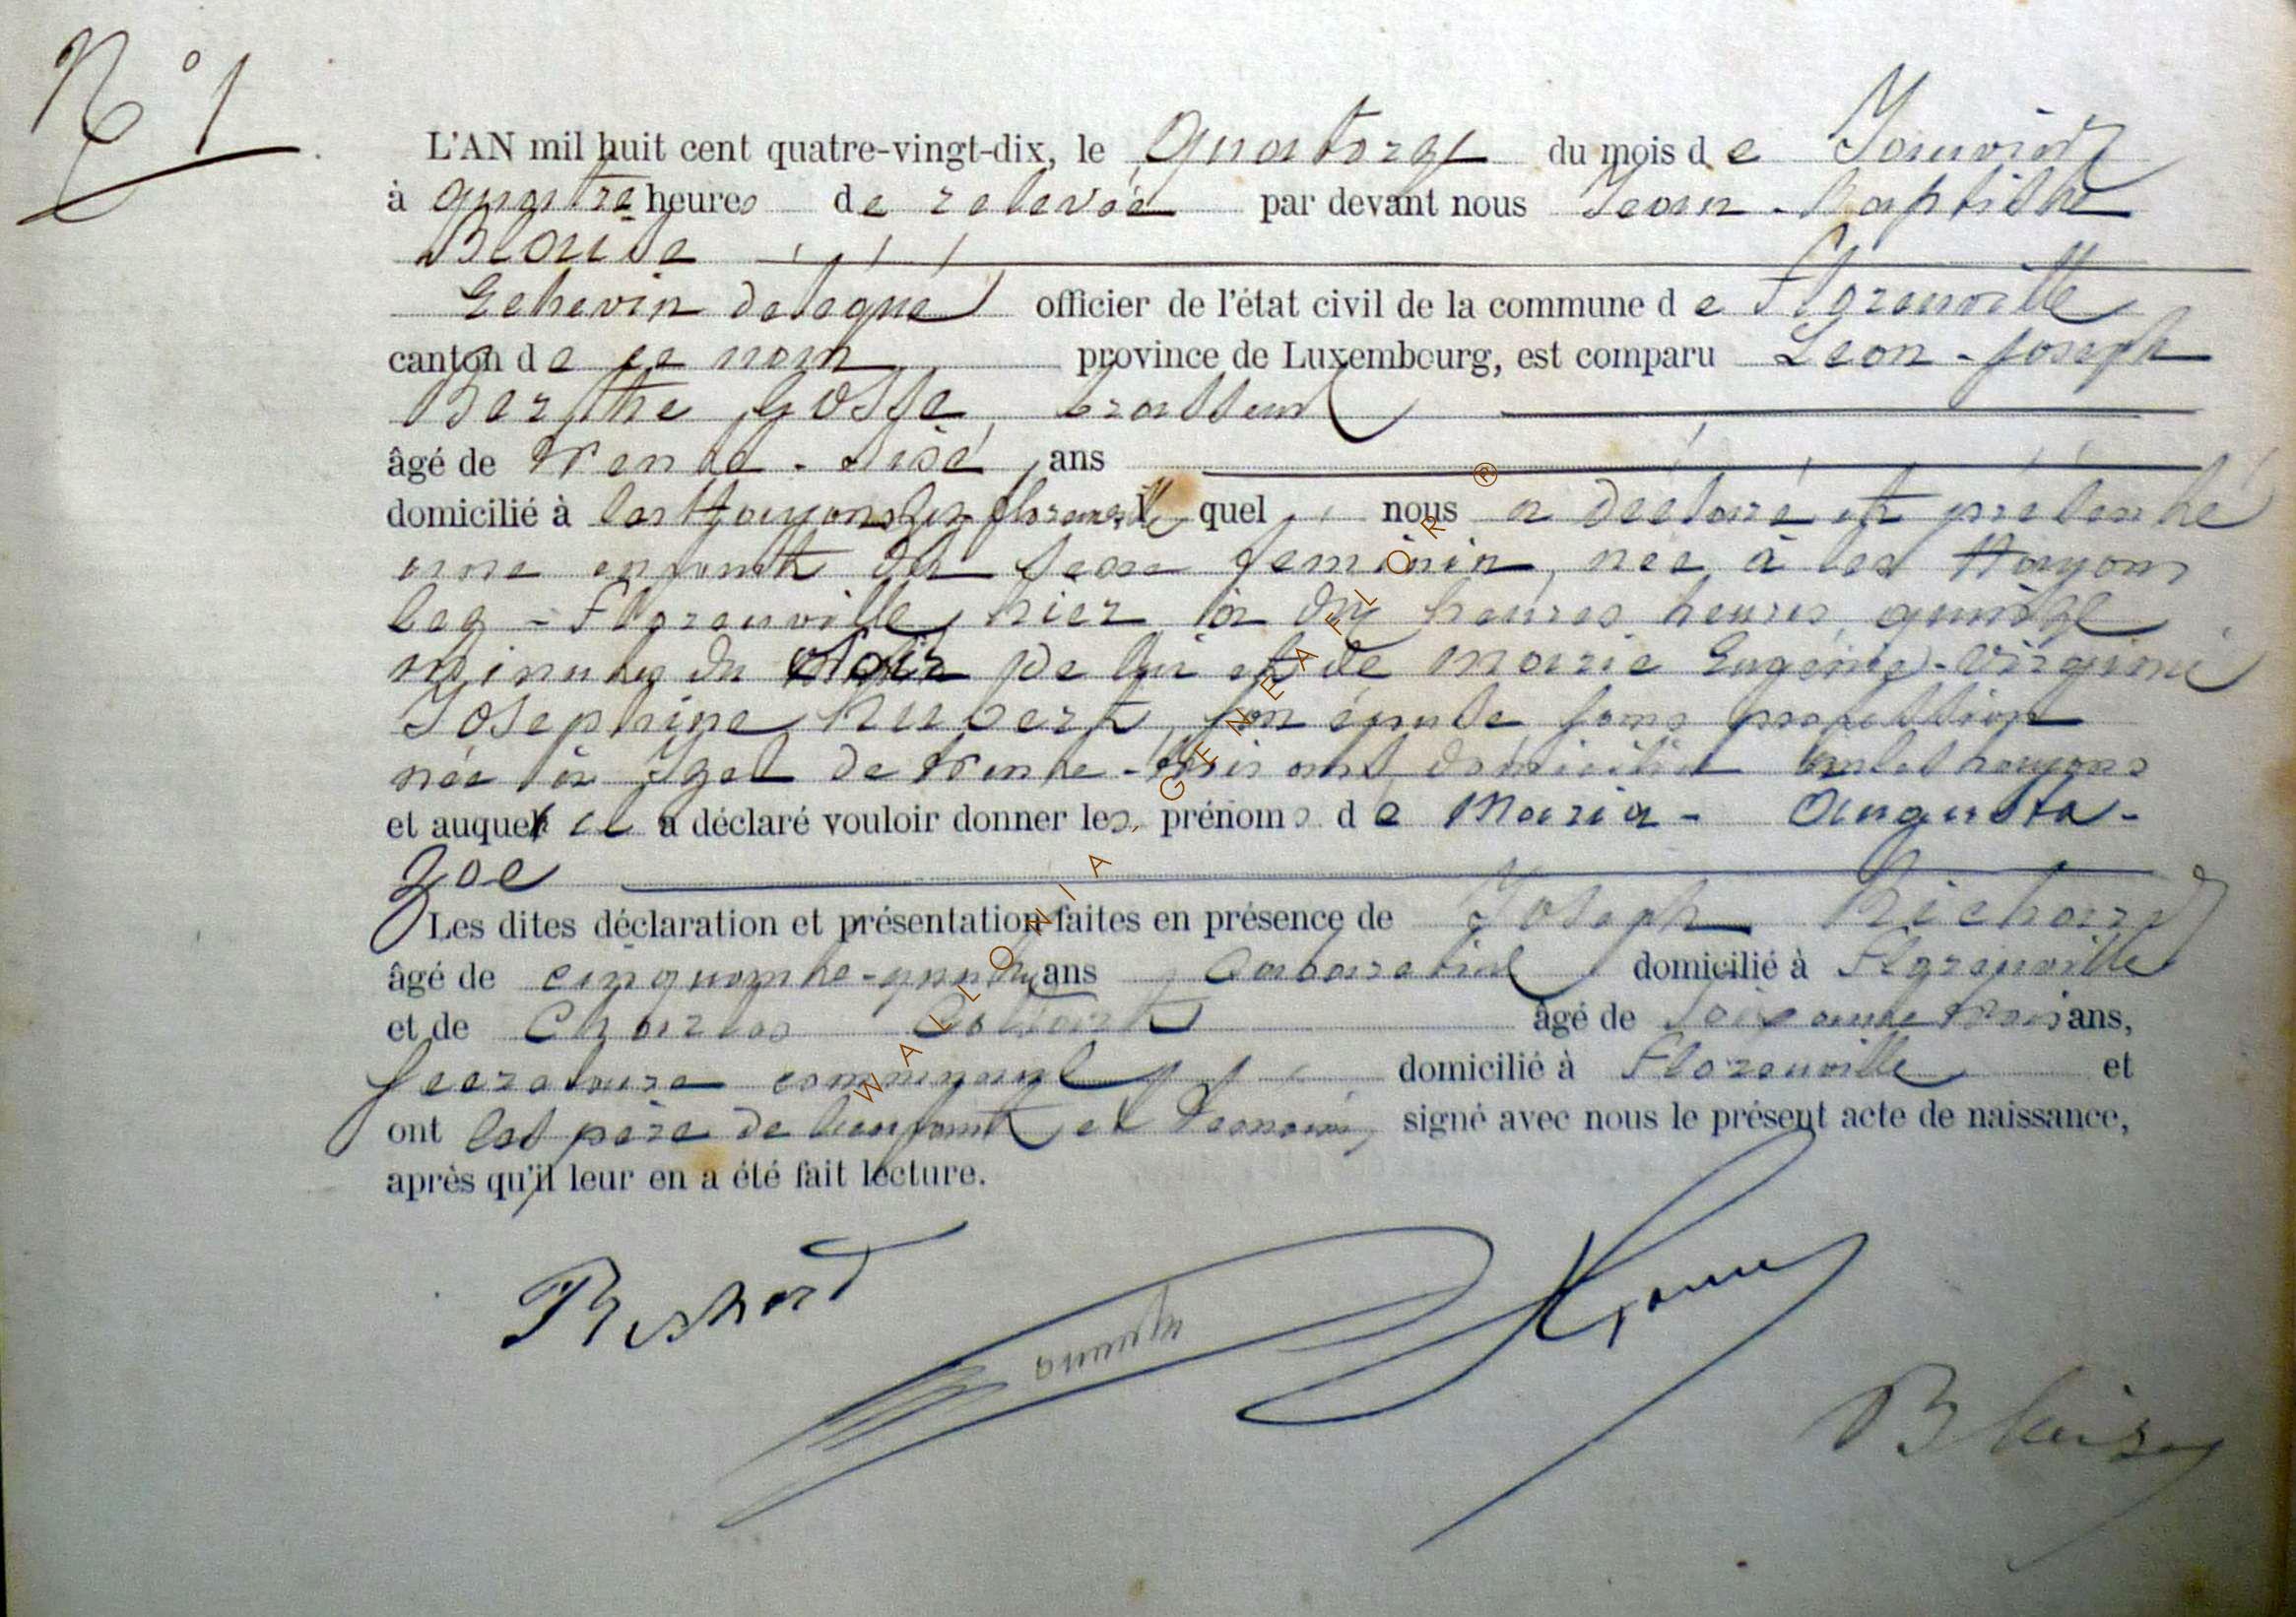 N° 1
L'AN mil huit cent quatre-vingt-dix, le quatorze du mois de Janvier
à quatre heures de relevée par devant nous Jean-Baptiste
Blaise
Echevin délégué officier de l'état civil de la commune de Florenville
canton de ce nom province de Luxembourg, est comparu Léon-Joseph
Berthe Gosse, brasseur
âgé de trente-six ans
domicilié à les Hayons lez Florenville quel nous a déclaré et présenté
une enfant du sexe feminin, née à les Hayons
lez-Florenville, hier à dix heures heures quinze
minutes du soir de lui et de Marie Eugénie-Virginie
Josephine Hubert, son épouse sans profession
née à Izel de trente-trois ans domiciliée les hayons
et auquel il a déclaré vouloir donner les prénoms de Maria-Augusta-
Zoe
Les dites déclaration et présentation faites en présence de Joseph Richard
âgé de cinquante- ans, Cabaretier domicilié à Florenville
et de Charles âgé de soixante trois ans,
secretaire communal domicilié à Florenville et
ont les père de l'enfant et témoins, signé avec nous le présent acte de naissance,
après qu'il leur en a été fait lecture.
Richard
Blaise
WALLONIA GENEAFLOR ®